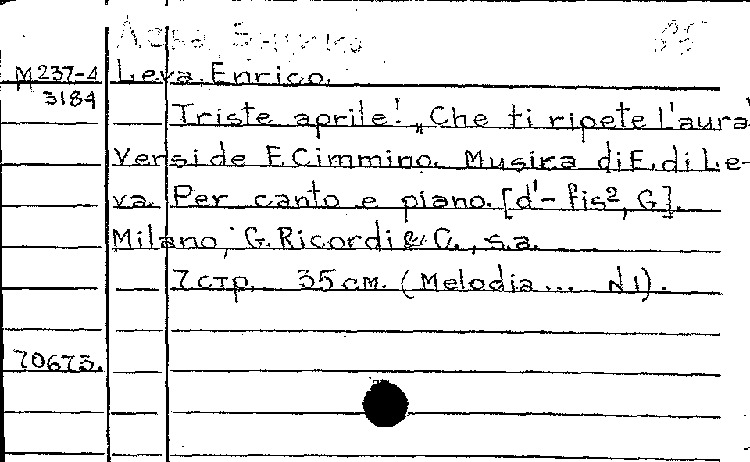 М 237-4 Leva Enrico.
3184 Triste aprile! „Che ti ripete l'aura"
Versi de F. Cimmino. Musica di E. di Le-
va. Per canto e piano. [d'- fis², G].
Milano, G. Ricordi & C., s.a.
7 стр. 35 см. (Melodia ... N1).
70673.